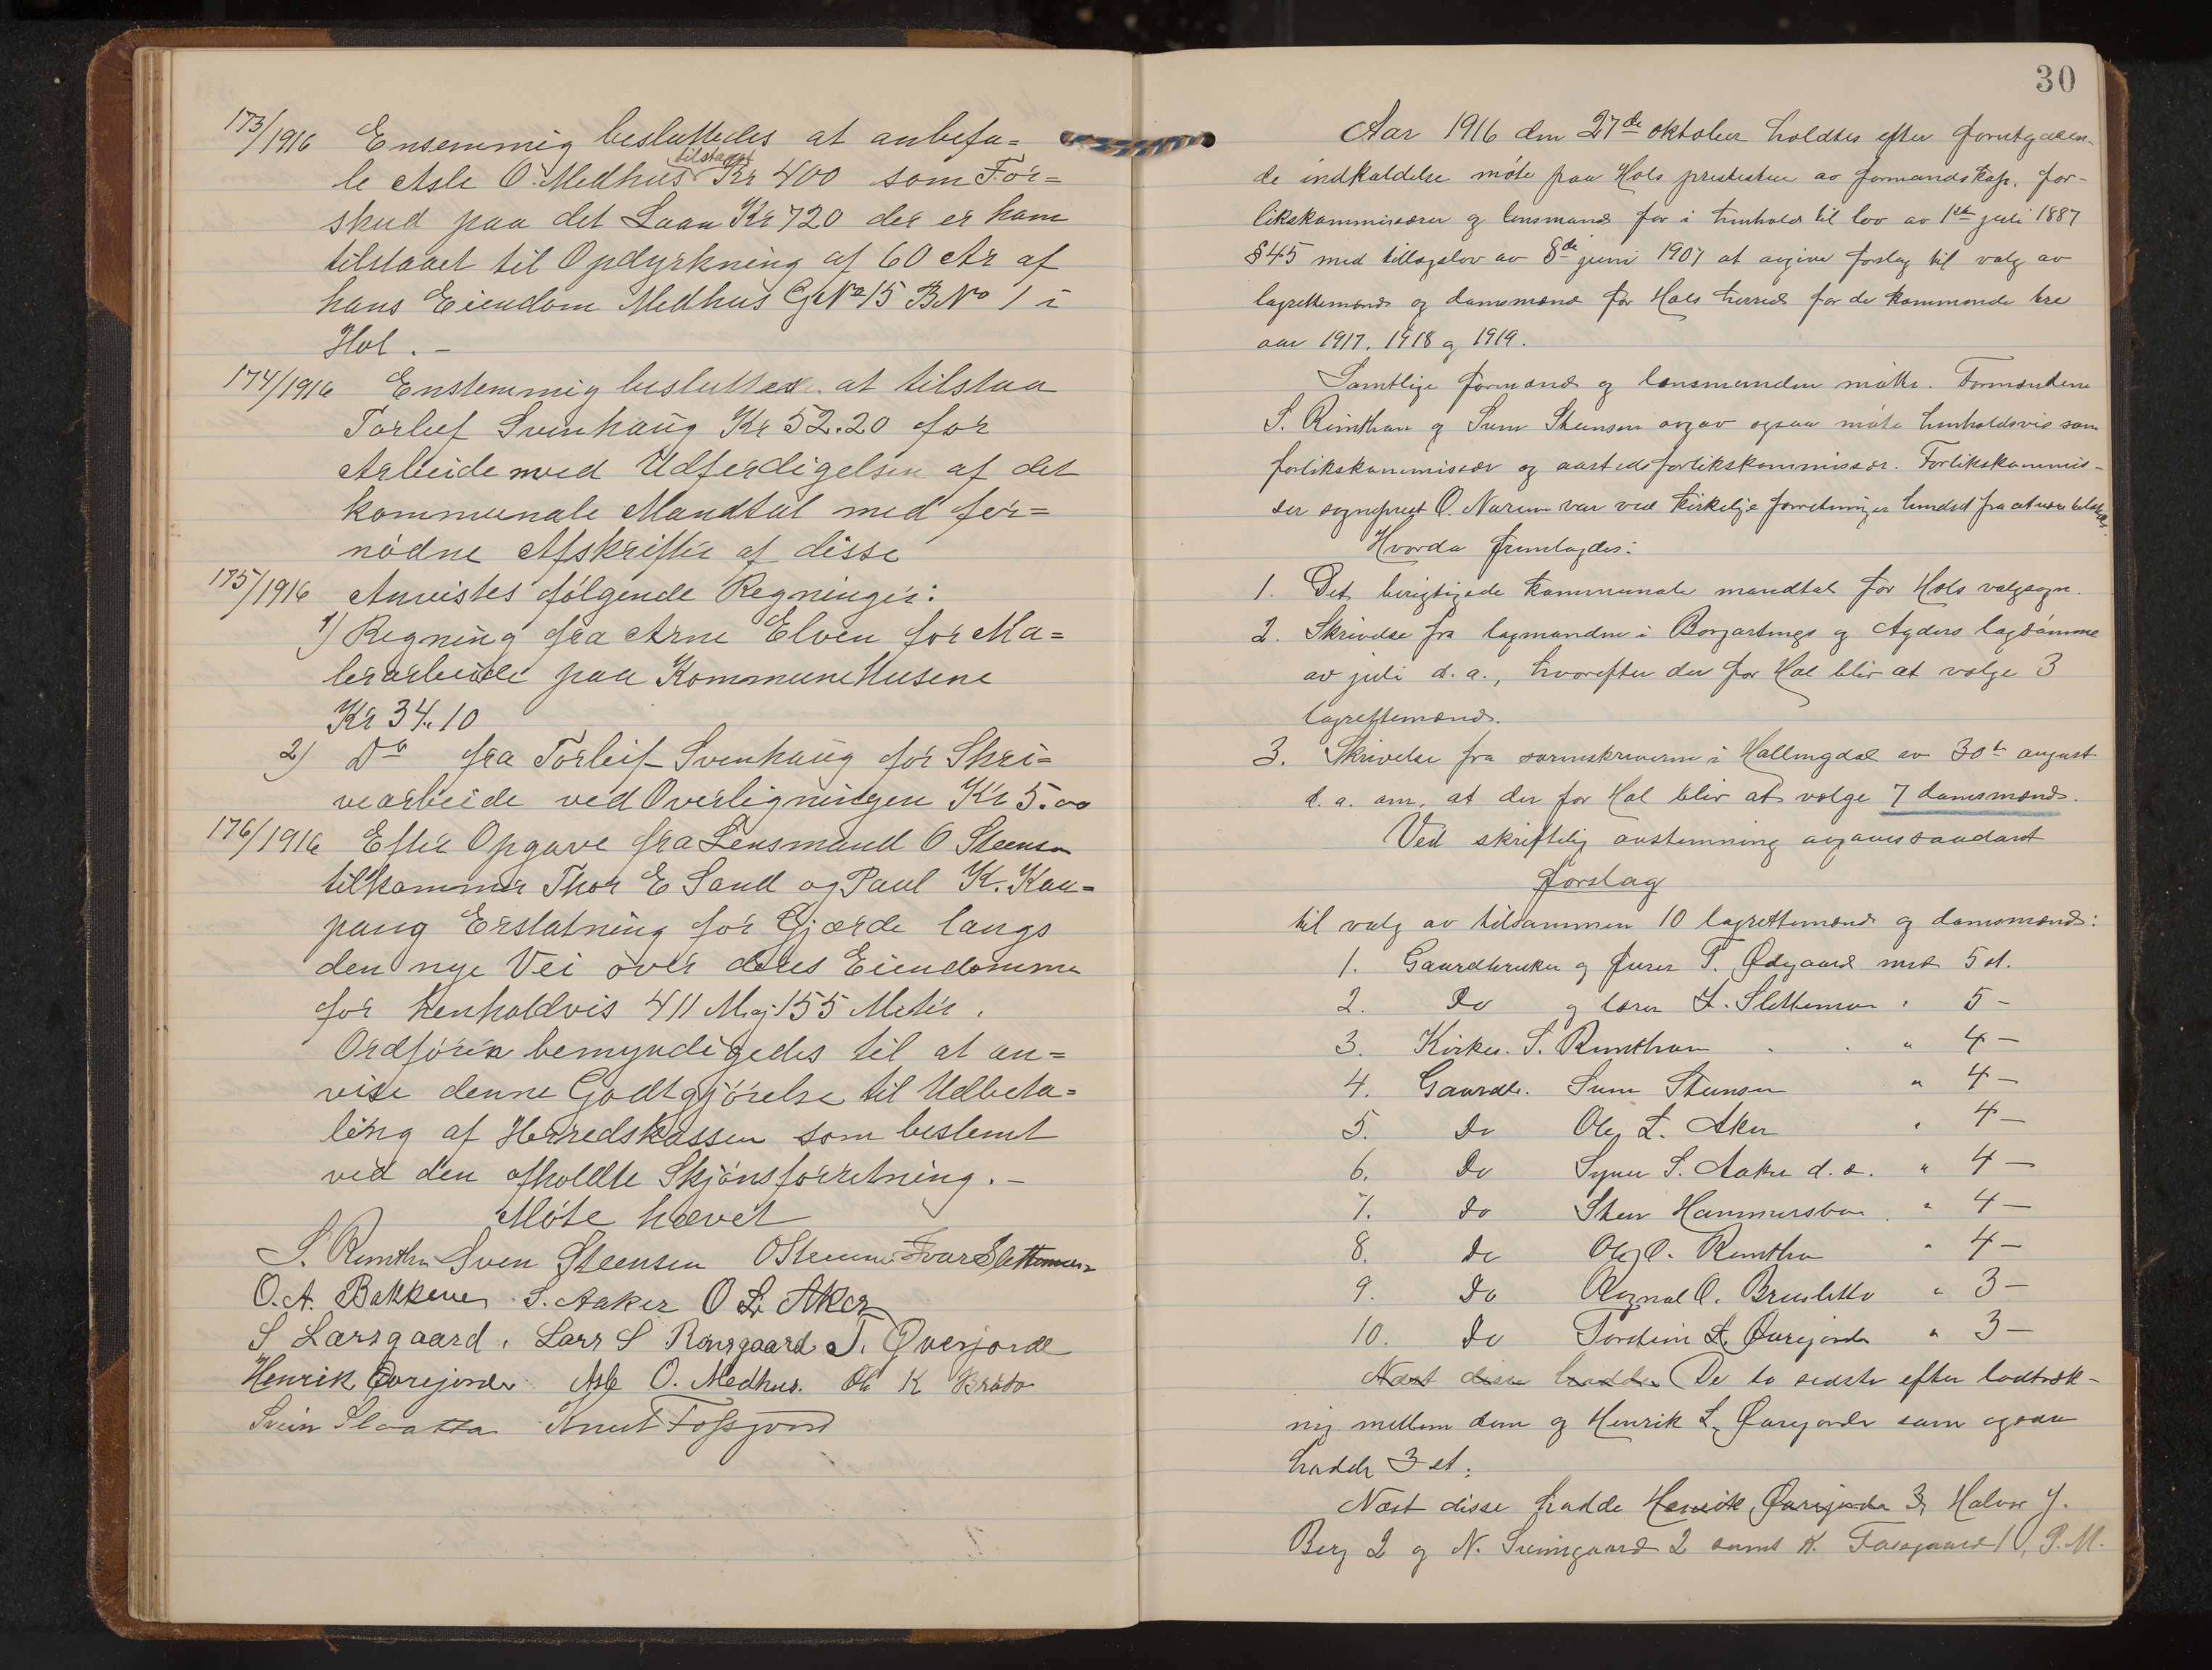 173/1916 Ensemmig besluttedes at anbefa=
le Asle O. Medhus tilstaaet Kr 400 som For=
skud paa det Laan Kr 720 der er ham
tilstaaet til Opdyrkning af 60 Ar af
hans Eiendom Medhus G.No 15 B.No 1 i
Hol. –
174/1916 Enstemmig besluttes at tilstaa
Torleif Svenhaug Kr 52.20 for
Arbeide med Udferdigelsen af det
kommunale Mandtal med for=
nødne Afskrifter af disse
175/1916 Anvistes følgende Regninger:
1) Regning fra Arne Elven for Ma=
lerarbeide paa KommuneHusene
Kr 34.10
2) Do fra Torleif Svenhaug for Skri=
vearbeide ved Overligningen Kr 5.00
176/1916 Efter Opgave fra Lensmand O Steensen
tilkommer Thor E Sand og Paul K. Kau=
pang Erstatning for Gjærde langs
den nye Vei over deres Eiendomme
for henholdvis 411 M og 155 Meter.
Ordføren bemyndigedes til at an=
vise denne Godtgjørelse til Udbeta=
ling af Herredskassen som bestemt
ved den afholdte Skjønsforretning. –
Møte hævet
S. Rimthun Sven Steensen O Steensen Ivar Slettemoen
O. A. Bakkene S. Aaker O L. Aker
S Larsgaard. Lars S Rønsgaard T. Øverjorde
Henrik Øvrejorde Asle O. Medhus. Ole K Braato
Svein Slaatta Knut Fossgård
30
Aar 1916 den 27de oktober holdtes efter forutgaaen-
de indkaldelse møte paa Hols prestestue av formandskap, for-
likskommissærer og lensmand for i henhold til lov av 1ste juli 1887
§ 45 med tillægslov av 8de juni 1907 at avgive forslag til valg av
lagrettemænd og domsmænd for Hols herred for de kommende tre
aar 1917, 1918 og 1919.
Samtlige formænd og lensmanden møtte. Formændene
S. Rimthun og Svein Steensen avgav ogsaa møte henholdsvis som
forlikskommissær og aastedsforlikskommissær. Forlikskommis-
sær sogneprest O. Narum var ved kirkelige forretninger hindret fra at være tilstede.
Hvorda fremlagdes:
1. Det berigtigede kommunale mandtal for Hols valgsogn.
2. Skrivelse fra lagmanden i Borgartings og Agders lagdømme
av juli d. a., hvorefter der for Hol blir at vælge 3
lagrettemænd.
3. Skrivelse fra sorenskriveren i Hallingdal av 30te august
d. a. om, at der for Hol blir at vælge 7 domsmænd.
Ved skriftlig avstemning avgaves saadant
forslag
til valg av tilsammen 10 lagrettemænd og domsmænd:
1. Gaardbruker og furer T. Ødegaard med 5 st.
2. Do og lærer I. Slettemoen " 5 –
3. Kirkes. S. Rimthun " 4 –
4. Gaardb. Svein Steensen " 4 –
5. Do Ole L. Aker " 4 –
6. Do Syver S. Aaker d. æ. " 4 –
7. Do Sten Hammersbøen " 4 –
8. Do Ole O. Rimthun " 4 –
9. Do Ragnal O. Brusletto " 3 –
10. Do Torstein L. Øvrejorde " 3 –
Næst disse hadde De to sidste efter lodtræk-
ning mellem dem og Henrik L. Øvrejorde som ogsaa
hadde 3 st.
Næst disse hadde Henrik Øvrejorde 3, Halvor J.
Berg 2 og N. Sveingaard 2 samt K. Fossgaard 1, P. M.